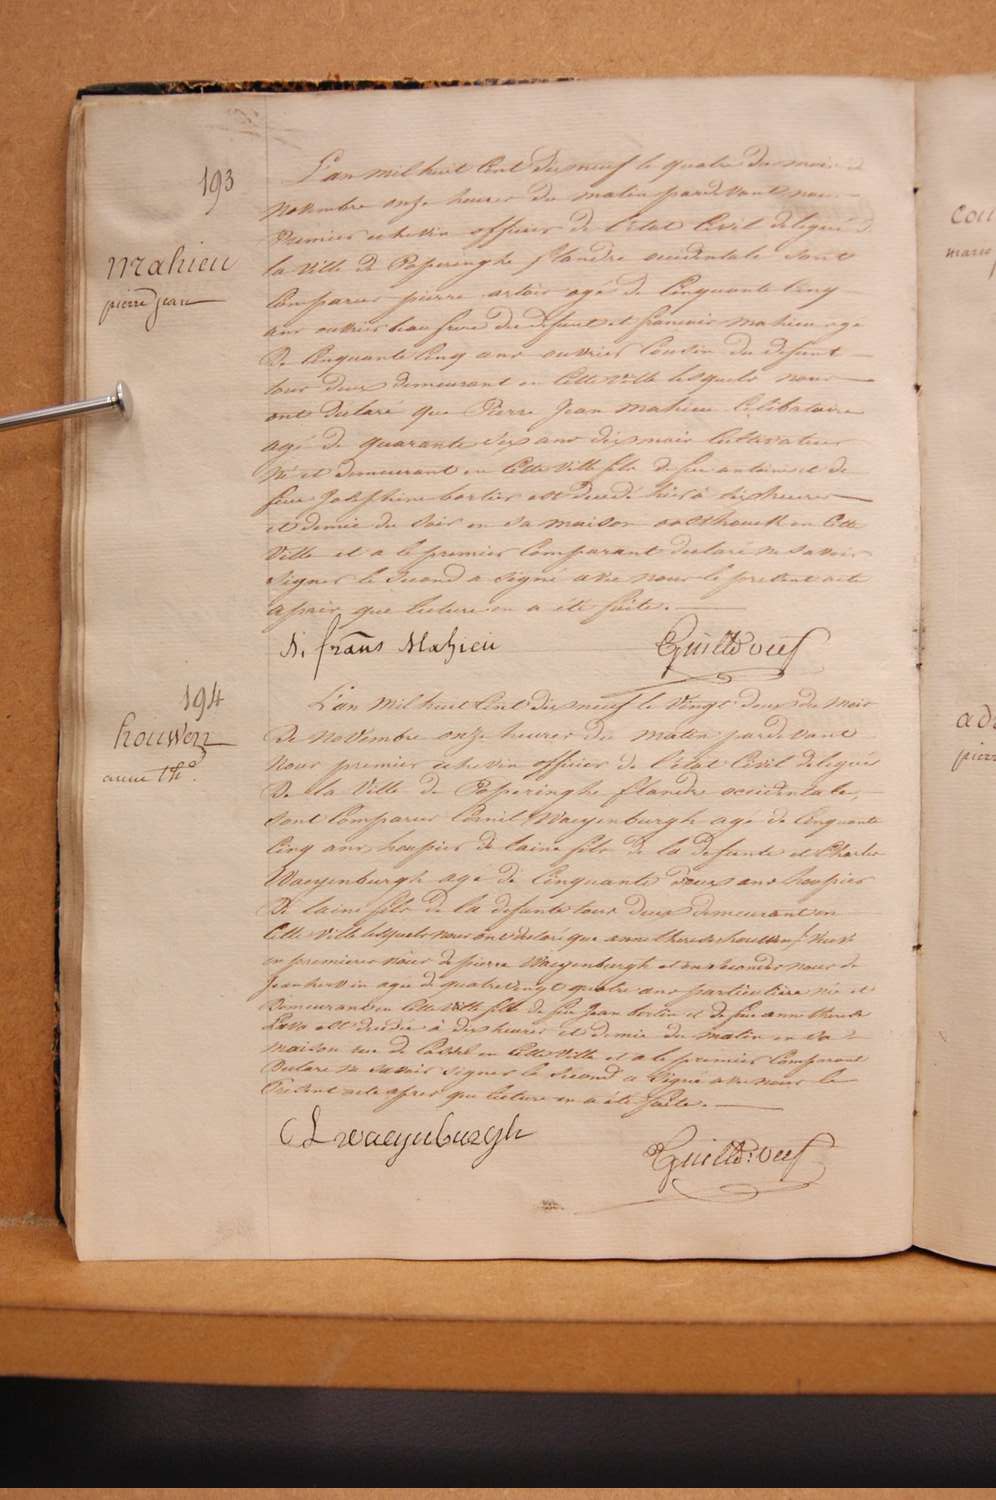 193
mahieu
pierre jean
L'an mil huit Cent dix neuf le quatre du mois de
novembre onze heures du matin pardevant nous
Premier echevin officier de l'etat Civil delegué de
la ville de Poperinghe flandre occidentale Sont
Comparus pierre artois agé de Cinquante Cinq
ans ouvrier beau frere du defunt et francois mahieu agé
De Cinquante Cinq ans ouvrier Cousin du defunt
tous deux demeurant en Cette ville lesquels nous
ont declaré que Pierre Jean mahieu Celibataire
agé de quarante six ans dix mois Cultivateur
né et demeurant en Cette ville fils de feu antoine et de
feue Josephine bortier est decedé hier à six heures
et demie du soir en sa maison oosthouck en Cette
Ville et a le premier Comparant declaré ne savoir
Signer le Second a Signé avec nous le present acte
apres que lecture en a été faite.
frans Mahieu
194
houwen
anne the.
L'an mil huit Cent dix neuf le vingt deux du mois
De novembre onze heures du matin pardevant
nous premier echevin officier de l'etat Civil delegué
De la Ville de Poperinghe flandre occidentale,
Sont Comparus Cornil Waeyenburgh agé de Cinquante
Cinq ans houpier de laine fils de la defunte et Charles
Waeyenburgh agé de Cinquante deux ans houpier
De laine fils de la defunte tous deux demeurant en
Cette ville lesquels nous ont declaré que anne therese houwen veuve
en premieres noces de pierre Waeyenburgh et en secondes noces de
Jean agée de quatre vingt quatre ans particuliere née et
Demeurant en Cette ville fille de feu Jean bortin et de feue anne therese
est decedée à dix heures et demie du matin en sa
maison rue de Cassel en Cette ville et a le premier Comparant
Declaré ne savoir signer le Second a Signé avec nous le
Present acte apres que lecture en a été faite.
Ch Waeyenburgh